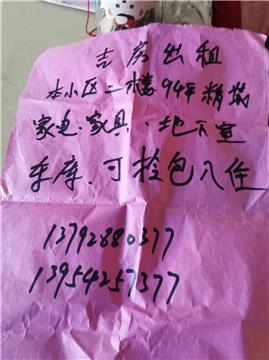 吉房出租
本小区二楼94平精装
家电.家具 地下室
车库.可拎包入住
13792880377
13954257377